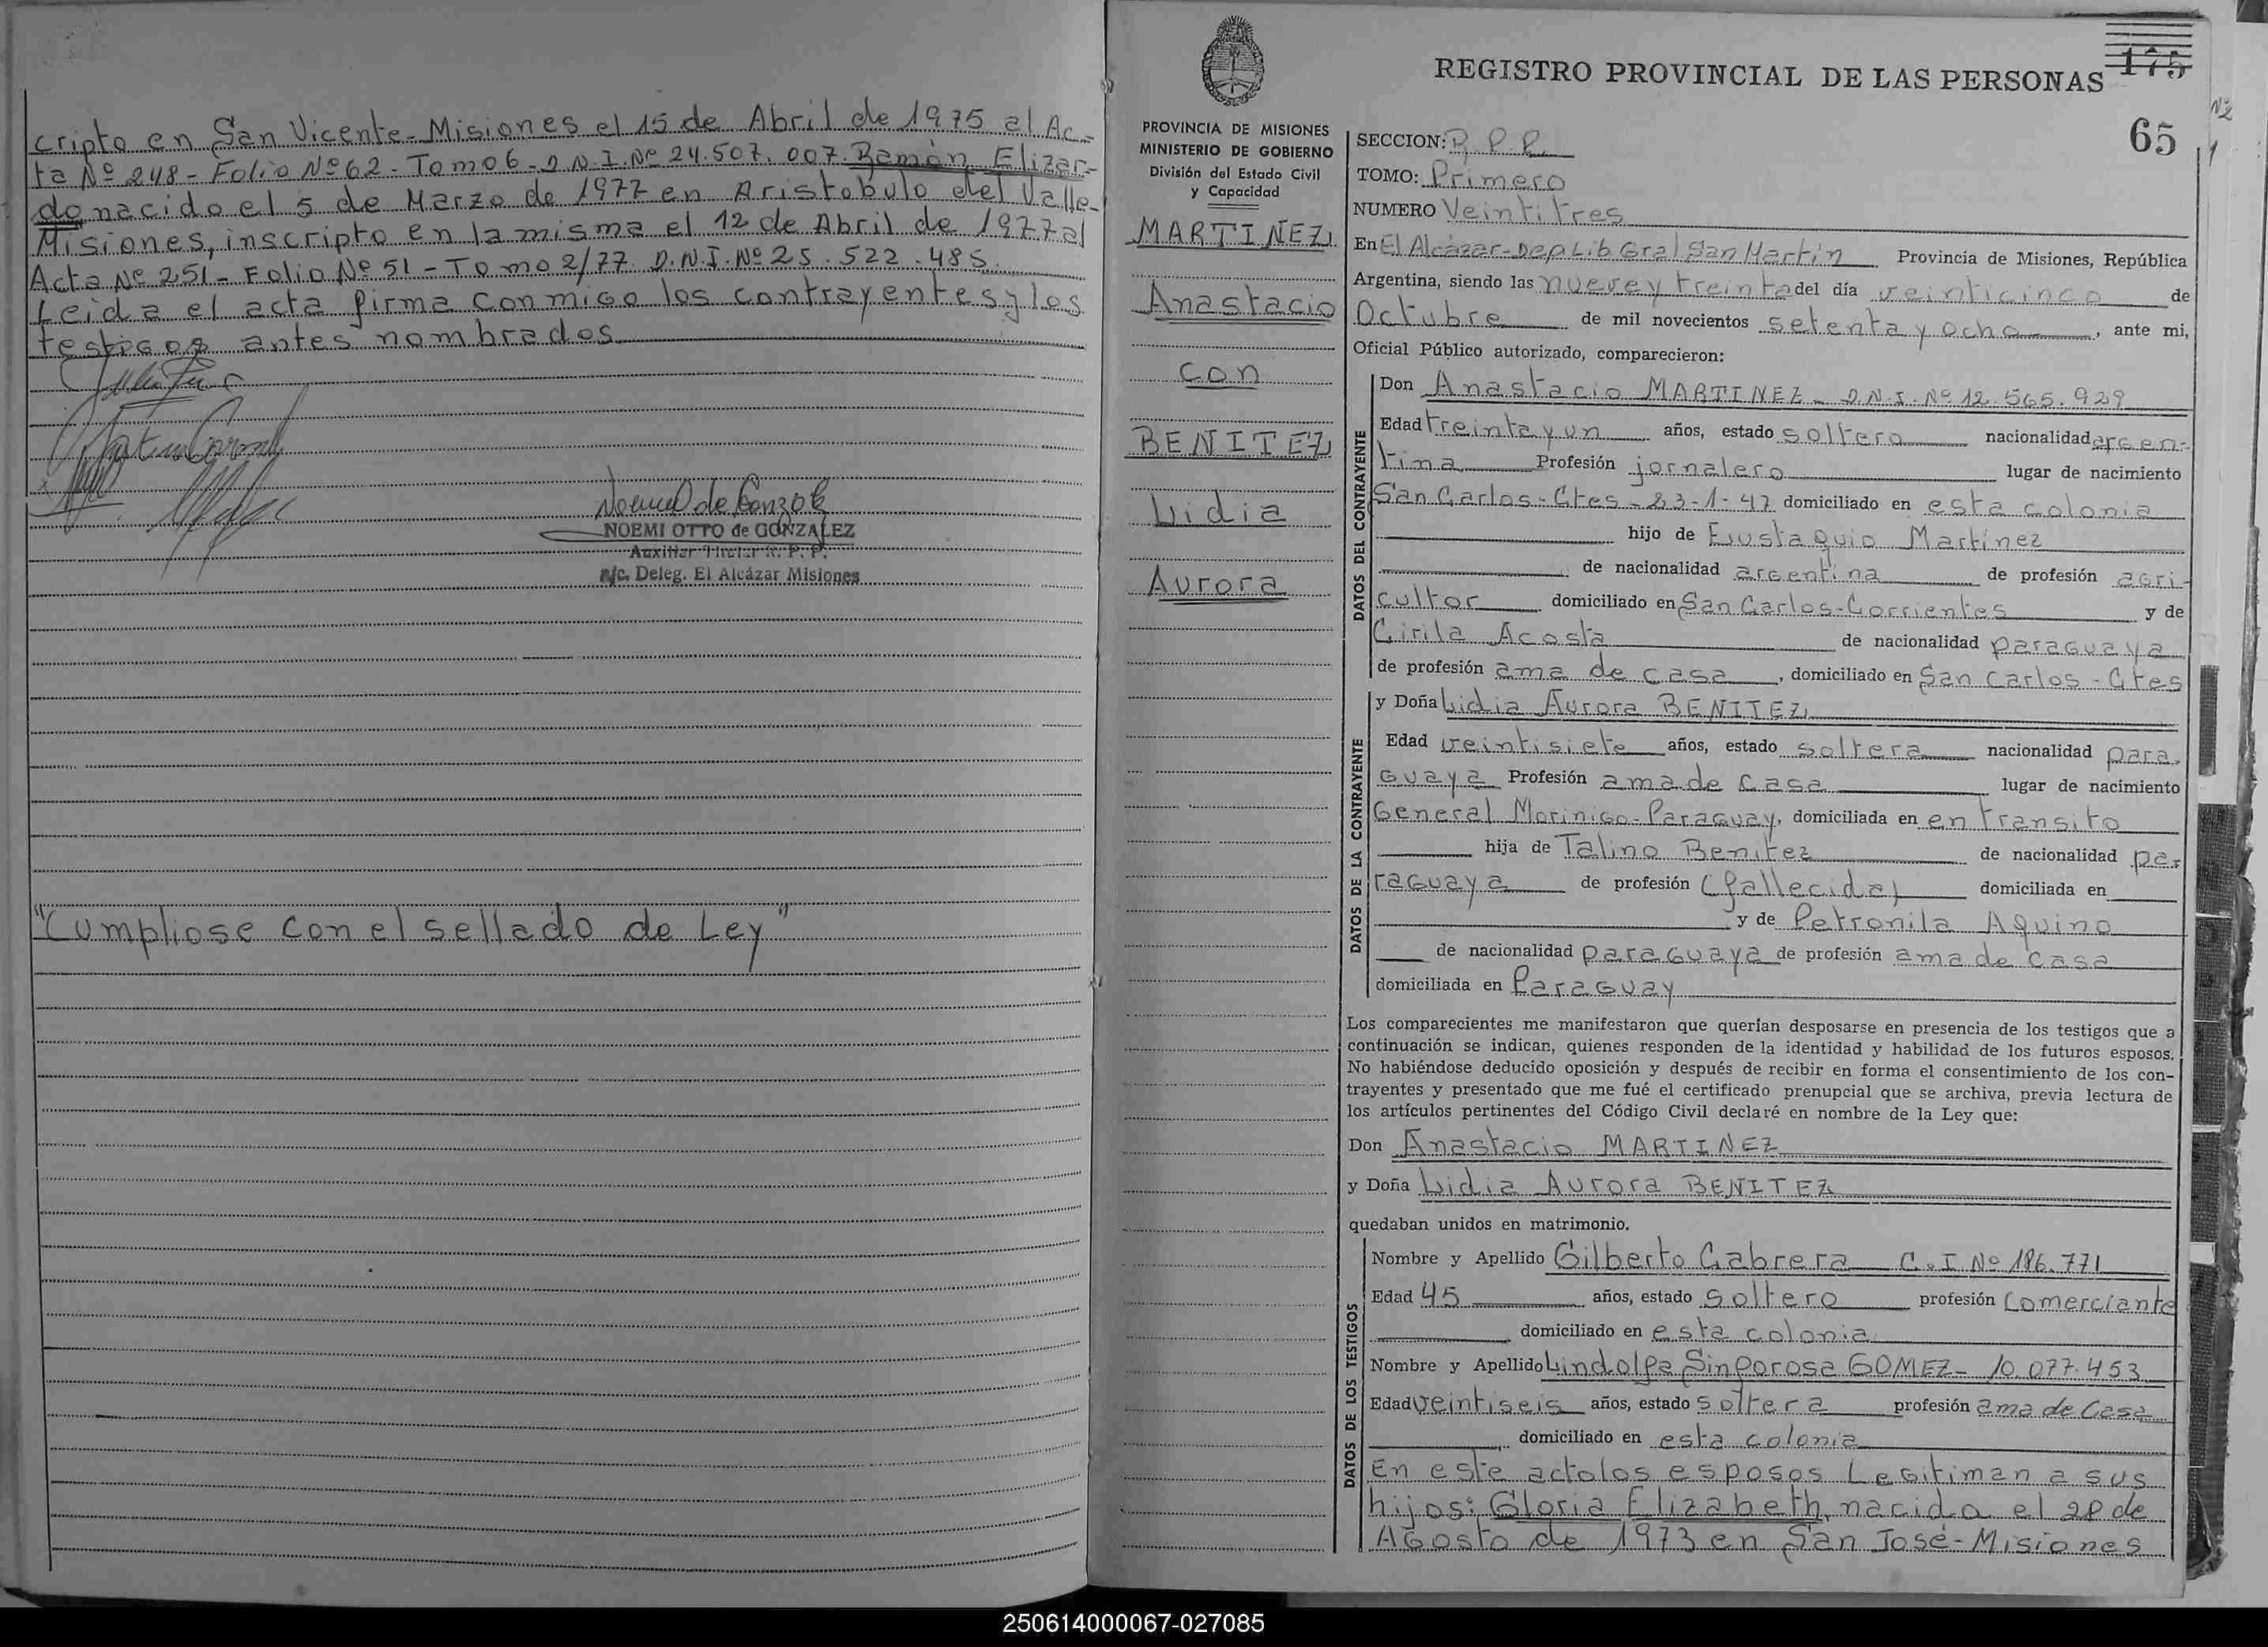 cripto en San Vicente-Misiones el 15 de Abril de 1975 al Ac-
ta Nº 248 - Folio Nº 62 - Tomo 6 - D.N.I. Nº 24.507.007 Ramón Elizar-
do nacido el 5 de Marzo de 1977 en Aristobulo del Valle-
Misiones, inscripto en la misma el 12 de Abril de 1977 al
Acta Nº 251 - Folio Nº 51 - Tomo 2/77 D.N.I. Nº 25.522.485.
Leida el acta firma conmigo los contrayentes y los
testigos antes nombrados
NOEMI OTTO de GONZALEZ
Auxiliar Titular R. P. P.
a/c. Deleg. El Alcázar Misiones
"Cumpliose con el sellado de Ley"
REGISTRO PROVINCIAL DE LAS PERSONAS
175
65
PROVINCIA DE MISIONES
MINISTERIO DE GOBIERNO
División del Estado Civil
y Capacidad
MARTINEZ
Anastacio
con
BENITEZ
Lidia
Aurora
SECCION: R.P.P.
TOMO: Primero
NUMERO Veintitres
En El Alcázar-Dep Lib Gral San Martín Provincia de Misiones, República
Argentina, siendo las nueve y treinta del día veinticinco de
Octubre de mil novecientos setenta y ocho, ante mi,
Oficial Público autorizado, comparecieron:
DATOS DEL CONTRAYENTE
Don Anastacio MARTINEZ - D.N.I. Nº 12.565.929
Edad treinta y un años, estado soltero nacionalidad argen-
tina Profesión jornalero lugar de nacimiento
San Carlos-Ctes-23-1-47 domiciliado en esta colonia
hijo de Eustaquio Martínez
de nacionalidad argentina de profesión agri-
cultor domiciliado en San Carlos-Corrientes y de
Cirila Acosta de nacionalidad paraguaya
de profesión ama de casa, domiciliado en San Carlos-Ctes
DATOS DE LA CONTRAYENTE
y Doña Lidia Aurora BENITEZ
Edad veintisiete años, estado soltera nacionalidad para-
guaya Profesión ama de casa lugar de nacimiento
General Morinigo-Paraguay, domiciliada en en transito
hija de Talino Benitez de nacionalidad pa-
raguaya de profesión (fallecida) domiciliada en
y de Petronila Aquino
de nacionalidad paraguaya de profesión ama de casa
domiciliada en Paraguay
Los comparecientes me manifestaron que querían desposarse en presencia de los testigos que a
continuación se indican, quienes responden de la identidad y habilidad de los futuros esposos.
No habiéndose deducido oposición y después de recibir en forma el consentimiento de los con-
trayentes y presentado que me fué el certificado prenupcial que se archiva, previa lectura de
los artículos pertinentes del Código Civil declaré en nombre de la Ley que:
Don Anastacio MARTINEZ
y Doña Lidia Aurora BENITEZ
quedaban unidos en matrimonio.
DATOS DE LOS TESTIGOS
Nombre y Apellido Gilberto Cabrera C.I Nº 186.771
Edad 45 años, estado soltero profesión Comerciante
domiciliado en esta colonia
Nombre y Apellido Lindolfa Sinforosa GOMEZ- 10.077.453
Edad veintiseis años, estado soltera profesión ama de casa
domiciliado en esta colonia
En este acto los esposos Legitiman a sus
hijos: Gloria Elizabeth, nacida el 28 de
Agosto de 1973 en San José-Misiones
250614000067-027085